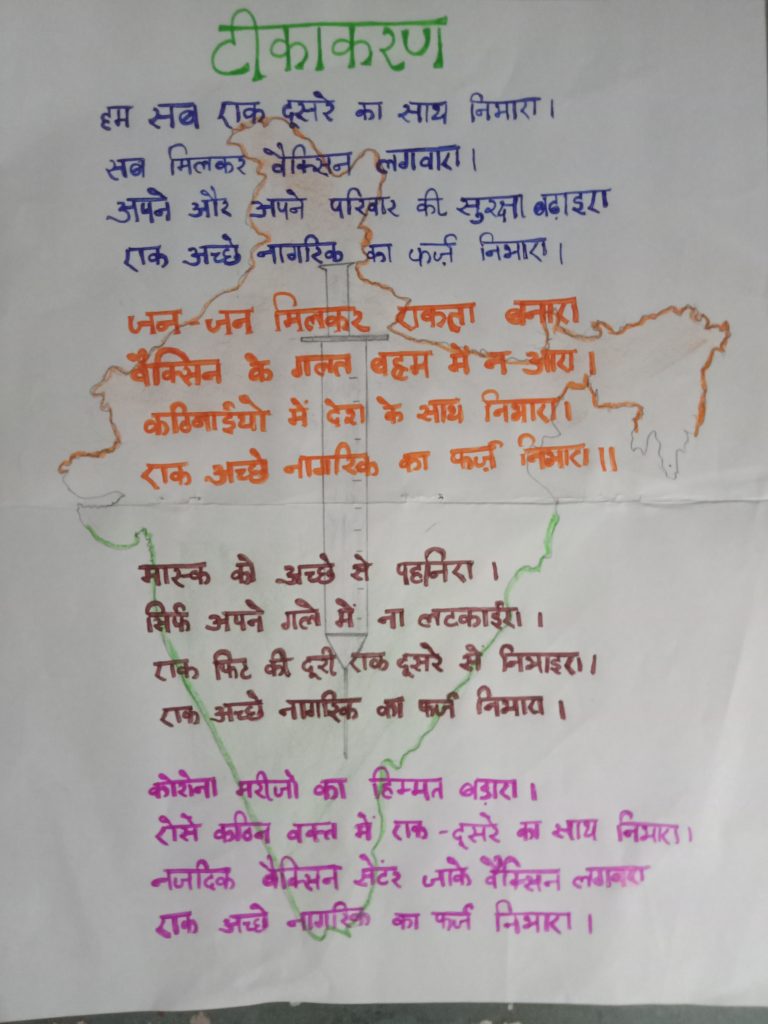 टीकाकरण
हम सब एक दूसरे का साथ निभाए।
सब मिलकर वैक्सिन लगवाए।
अपने और अपने परिवार की सुरक्षा बढ़ाइए
एक अच्छे नागरिक का फर्ज़ निभाए।
जन-जन मिलकर एकता बनाए
वैक्सिन के गलत वहम में न आए।
कठिनाईयो में देश के साथ निभाए।
एक अच्छे नागरिक का फर्ज़ निभाए॥
मास्क को अच्छे से पहनिए।
सिर्फ अपने गले में ना लटकाईए।
एक फिट की दूरी एक दूसरे से निभाइए।
एक अच्छे नागरिक का फर्ज निभाए।
कोरोना मरीजो का हिम्मत बड़ाए।
ऐसे कठिन वक्त में एक-दूसरे का साथ निभाए।
नजदिक वैक्सिन सेंटर जाके वैक्सिन लगवाए
एक अच्छे नागरिक का फर्ज निभाए।